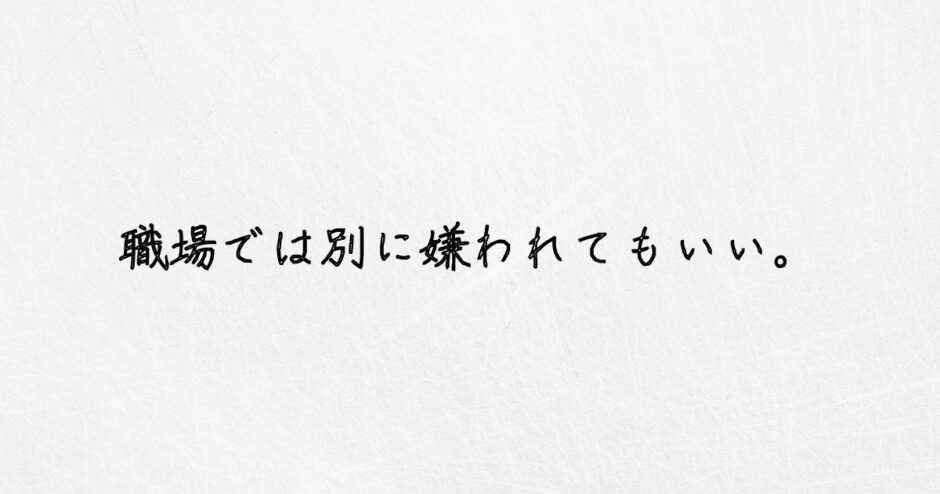 職場では別に嫌われてもいい。